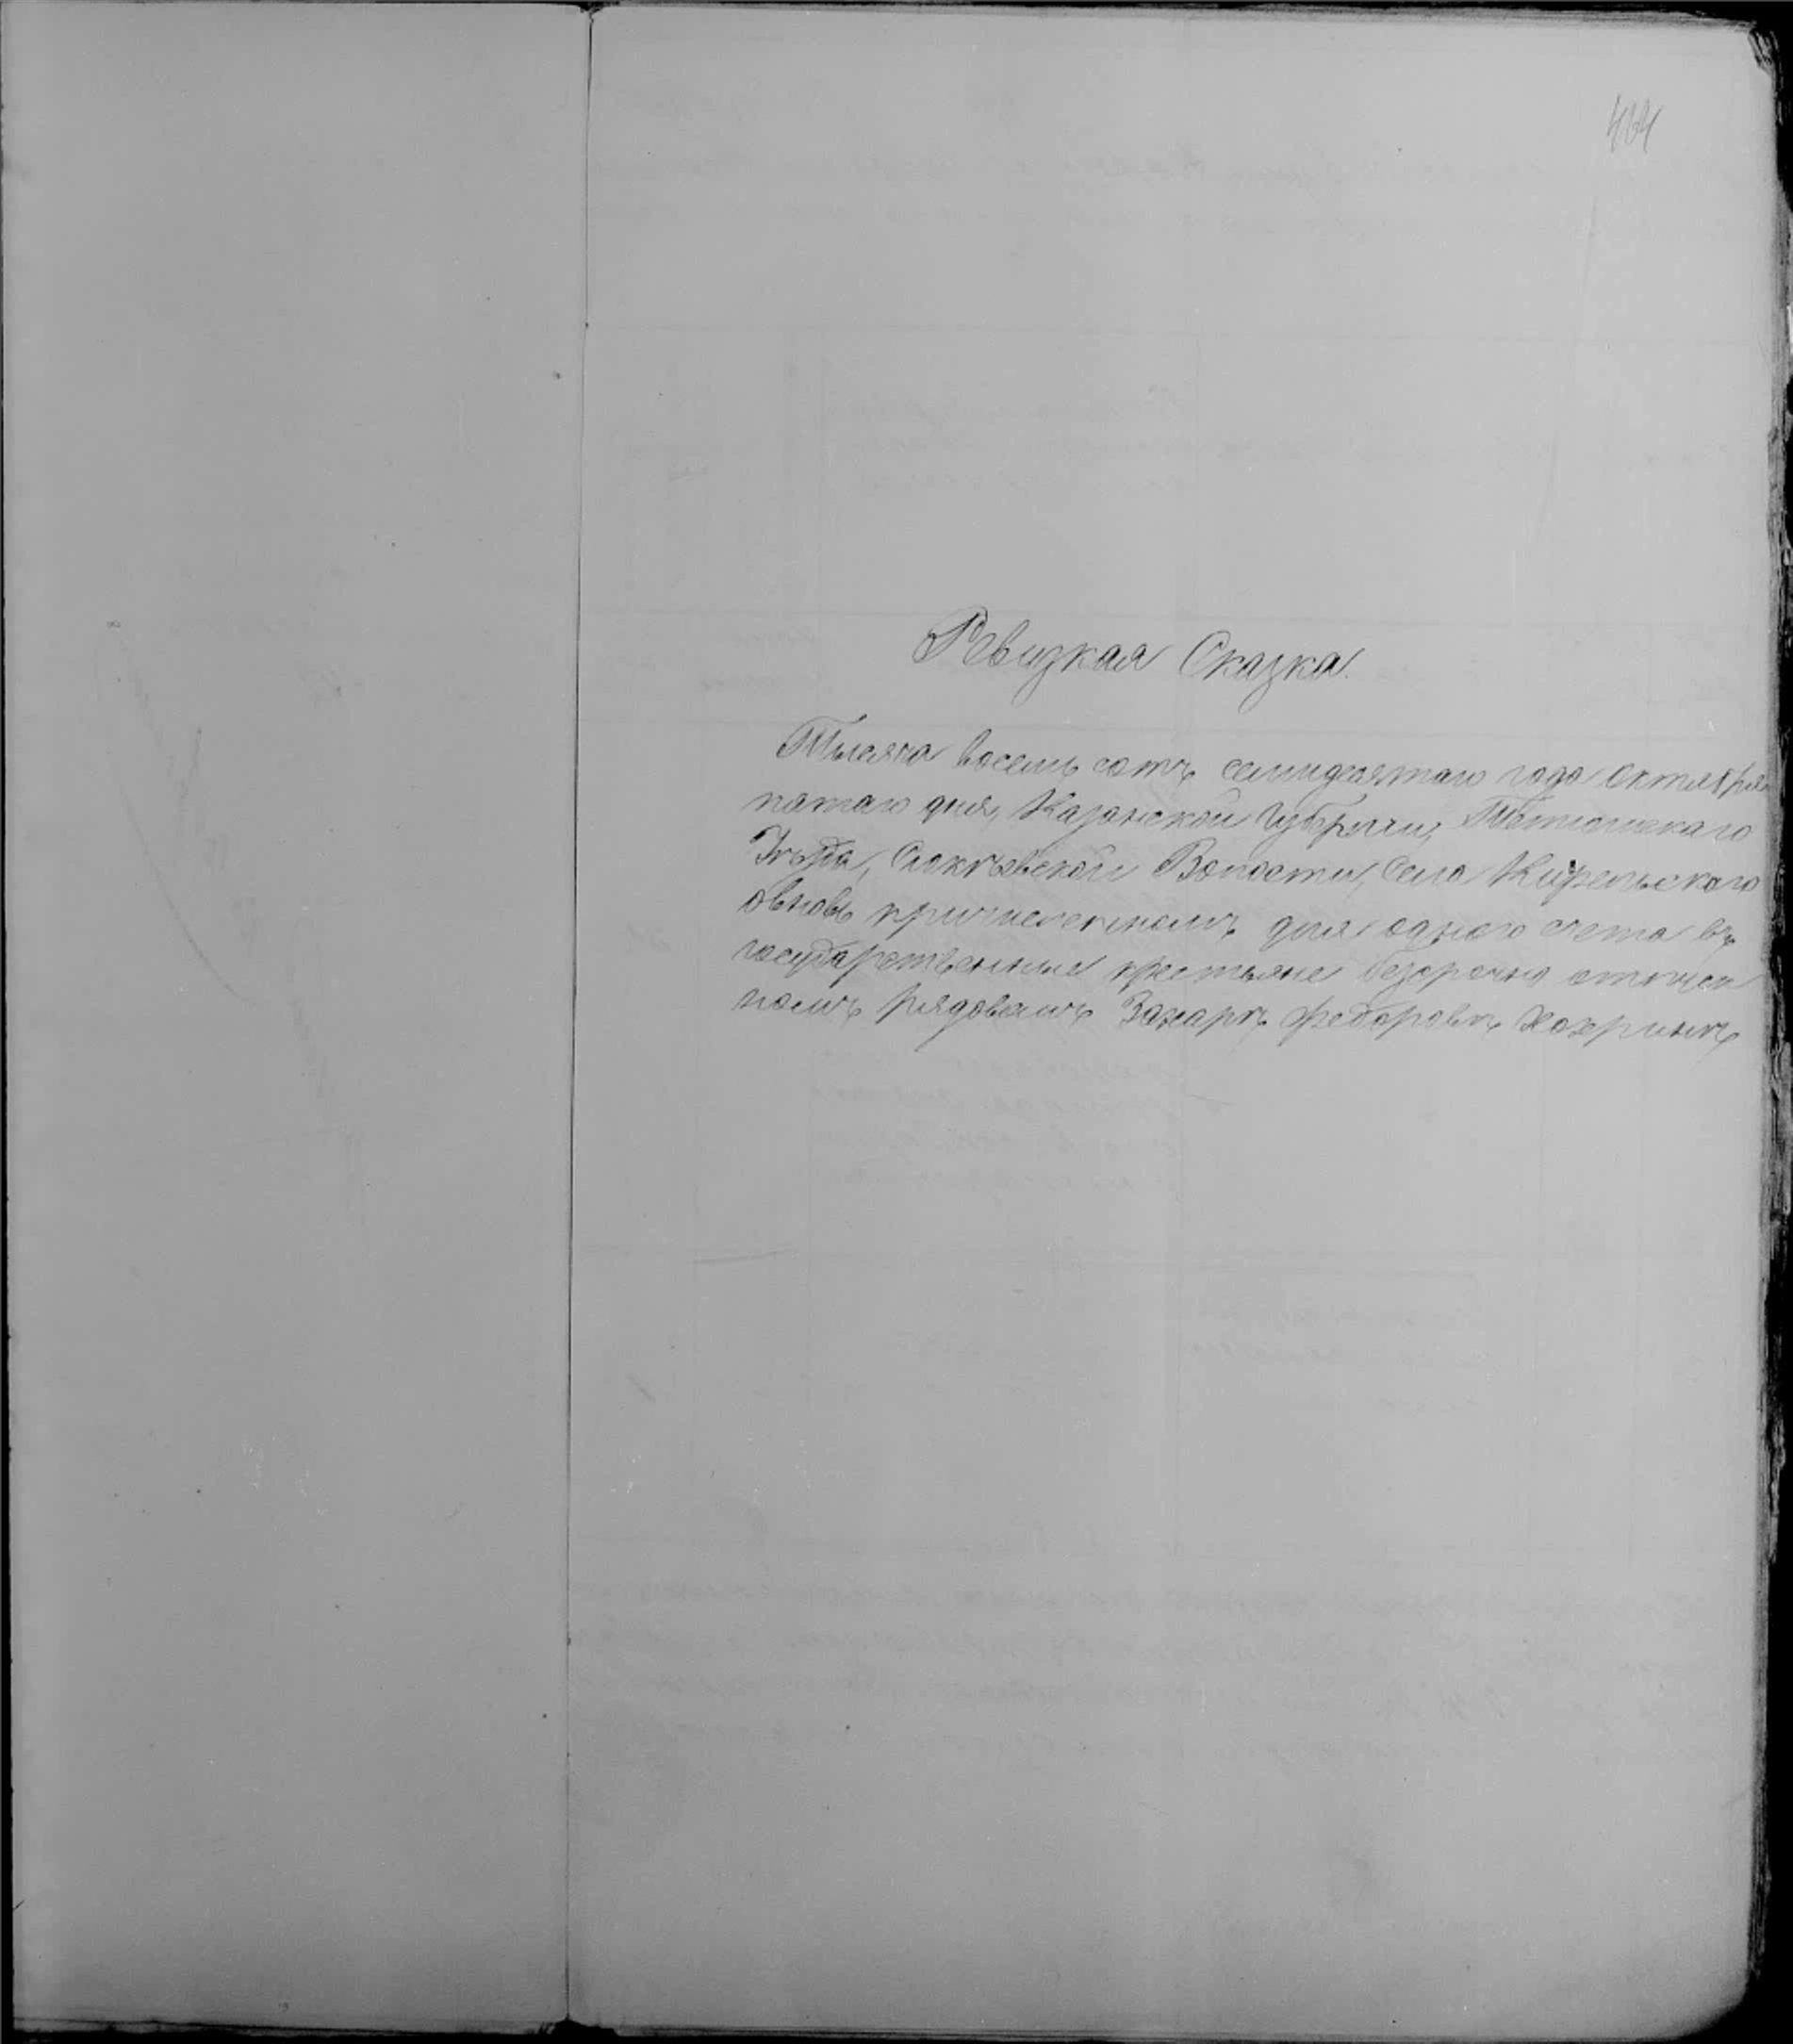 464
Ревизкая Сказка.
Тысяча восемь сотъ семидесятаго года октября
пятаго дня, Казанской Губерніи, Тетюшскаго
Уѣзда, Волости, Села Кирельскаго
овновь причисленномъ для одного счета въ
государственные крестьяне безсрочно отпущен
номъ рядовомъ Захаръ Федоровъ